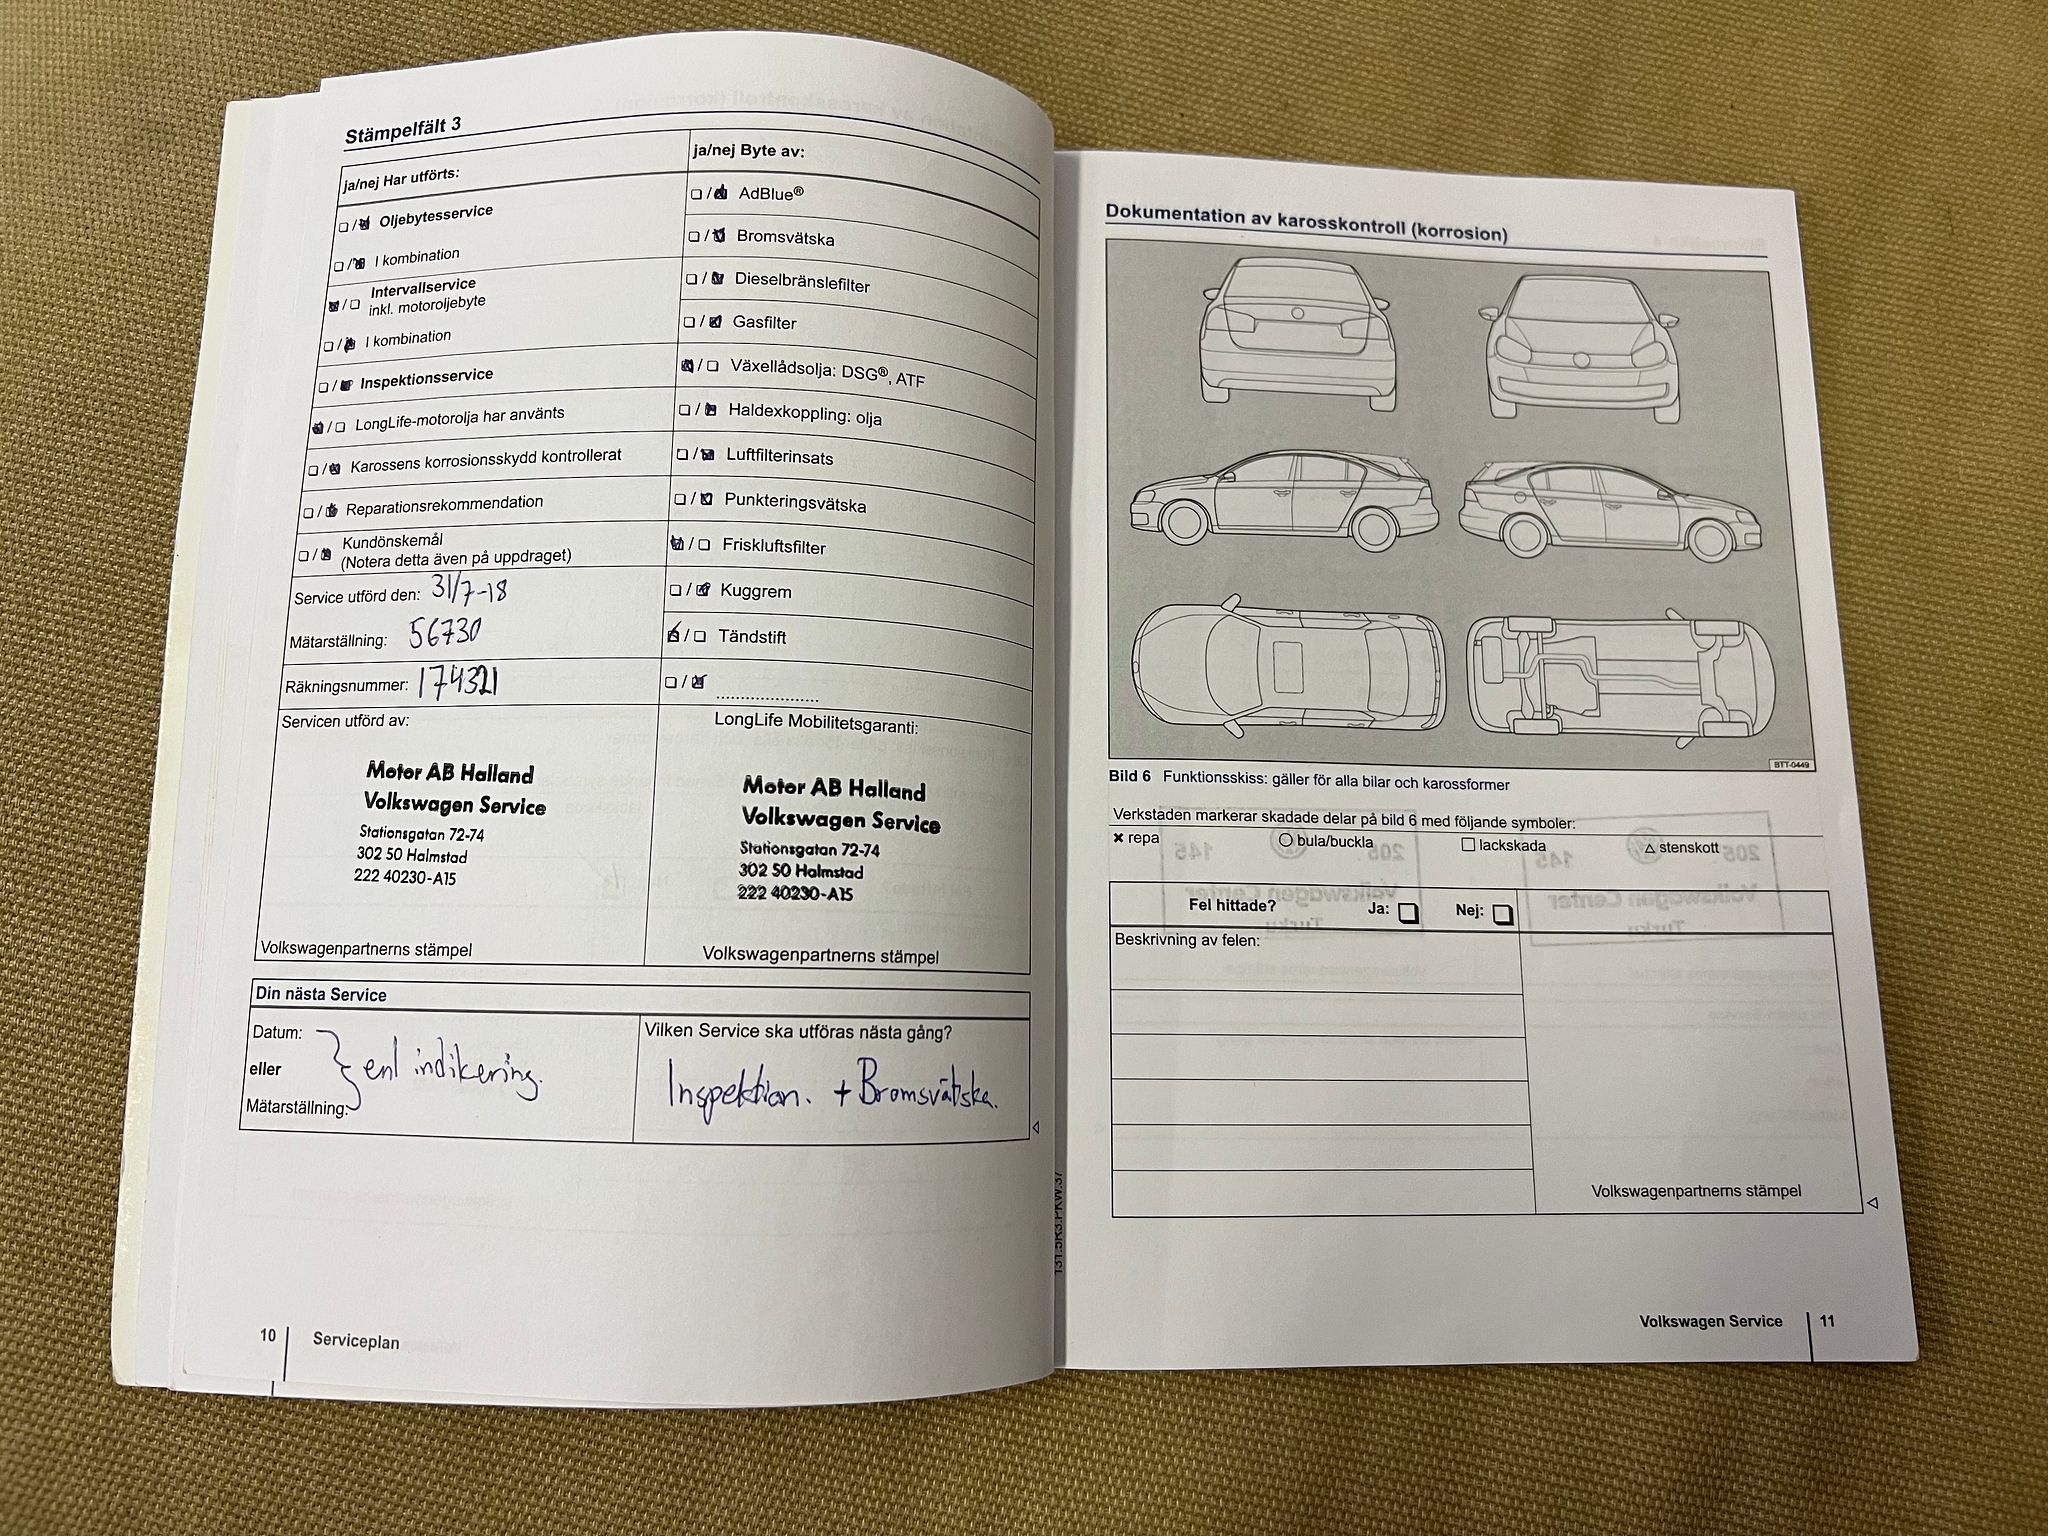 Stämpelfält 3
ja/nej Har utförts:
☐/☒ Oljebytesservice
☐/☒ I kombination
☒/☐ Intervallservice
inkl. motoroljebyte
☐/☒ I kombination
☐/☒ Inspektionsservice
☒/☐ LongLife-motorolja har använts
☐/☒ Karossens korrosionsskydd kontrollerat
☐/☒ Reparationsrekommendation
☐/☒ Kundönskemål
(Notera detta även på uppdraget)
Service utförd den: 31/7-18
Mätarställning: 56730
Räkningsnummer: 174321
ja/nej Byte av:
☐/☒ AdBlue®
☐/☒ Bromsvätska
☐/☒ Dieselbränslefilter
☐/☒ Gasfilter
☒/☐ Växellådsolja: DSG®, ATF
☐/☒ Haldexkoppling: olja
☐/☒ Luftfilterinsats
☐/☒ Punkteringsvätska
☒/☐ Friskluftsfilter
☐/☒ Kuggrem
☒/☐ Tändstift
☐/☒ ....................
Servicen utförd av:
Motor AB Halland
Volkswagen Service
Stationsgatan 72-74
302 50 Halmstad
222 40230-A15
Volkswagenpartnerns stämpel
LongLife Mobilitetsgaranti:
Motor AB Halland
Volkswagen Service
Stationsgatan 72-74
302 50 Halmstad
222 40230-A15
Volkswagenpartnerns stämpel
Din nästa Service
Datum:
eller
Mätarställning:
enl indikering.
Vilken Service ska utföras nästa gång?
Inspektion. + Bromsvätska.
10 Serviceplan
Dokumentation av karosskontroll (korrosion)
BTT-0449
Bild 6 Funktionsskiss: gäller för alla bilar och karossformer
Verkstaden markerar skadade delar på bild 6 med följande symboler:
✖ repa ○ bula/buckla ☐ lackskada △ stenskott
Fel hittade? Ja: ☐ Nej: ☐
Beskrivning av felen:
Volkswagenpartnerns stämpel
Volkswagen Service 11